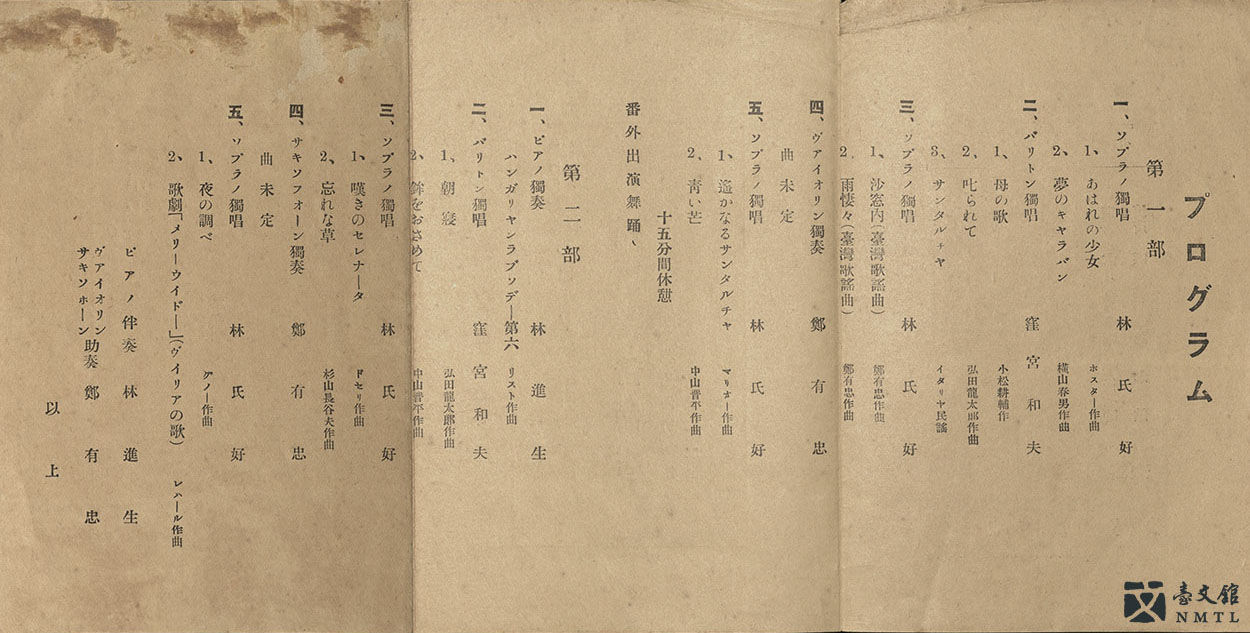 プログラム
第一部
一、ソプラノ獨唱 林氏好
1、あはれの少女 ホスター作曲
2、夢のキャラバン 横山春男作曲
二、バリトン獨唱 窪宮和夫
1、母の歌 小松耕輔作
2、叱られて 弘田龍太郎作曲
3、サンタルチヤ イタリヤ民謠
三、ソプラノ獨唱 林氏好
1、沙窓内(臺灣歌謠曲) 鄭有忠作曲
2、雨悽々(臺灣歌謠曲) 鄭有忠作曲
四、ヴアイオリン獨奏 鄭有忠
曲未定
五、ソプラノ獨唱 林氏好
1、遙かなるサンタルチヤ マリオー作曲
2、靑い芒 中山晋平作曲
十五分間休憩
番外出演舞踊、
第二部
一、ピアノ獨奏 林進生
ハンガリヤンラプソデー第六 リスト作曲
二、バリトン獨唱 窪宮和夫
1、朝寢 弘田龍太郎作曲
2、鉾をおさめて 中山晋平作曲
三、ソプラノ獨唱 林氏好
1、嘆きのセレナータ ドセリ作曲
2、忘れな草 杉山長谷夫作曲
四、サキソフォーン獨奏 鄭有忠
曲未定
五、ソプラノ獨唱 林氏好
1、夜の調べ グノー作曲
2、歌劇「メリーウイドー」(ヴイリアの歌) レハール作曲
ピアノ伴奏 林進生
ヴアイオリン
サキソホーン 助奏 鄭有忠
以上
臺文館
NMTL